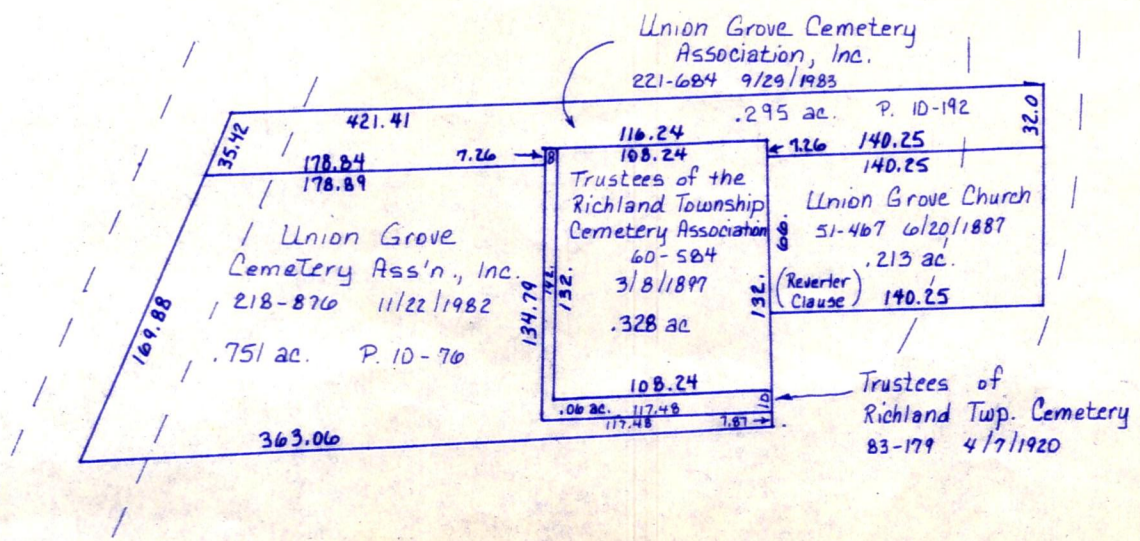 Union Grove Cemetery
Association, Inc.
221-684 9/29/1983
.295 ac. P. 10-192
32.0
421.41
35.42
116.24
108.24
7.26
8
7.26
140.25
140.25
178.84
178.89
Trustees of the
Richland Township
Cemetery Association
60-584
3/8/1897
.328 ac
Union Grove Church
51-467 6/20/1887
.213 ac.
(Reverter
Clause)
140.25
66.
132.
132.
142.
134.79
Union Grove
Cemetery Ass'n., Inc.
218-876 11/22/1982
.751 ac. P. 10-76
169.88
108.24
10
.06 ac. 117.48
117.48 7.87
363.06
Trustees of
Richland Twp. Cemetery
83-179 4/7/1920